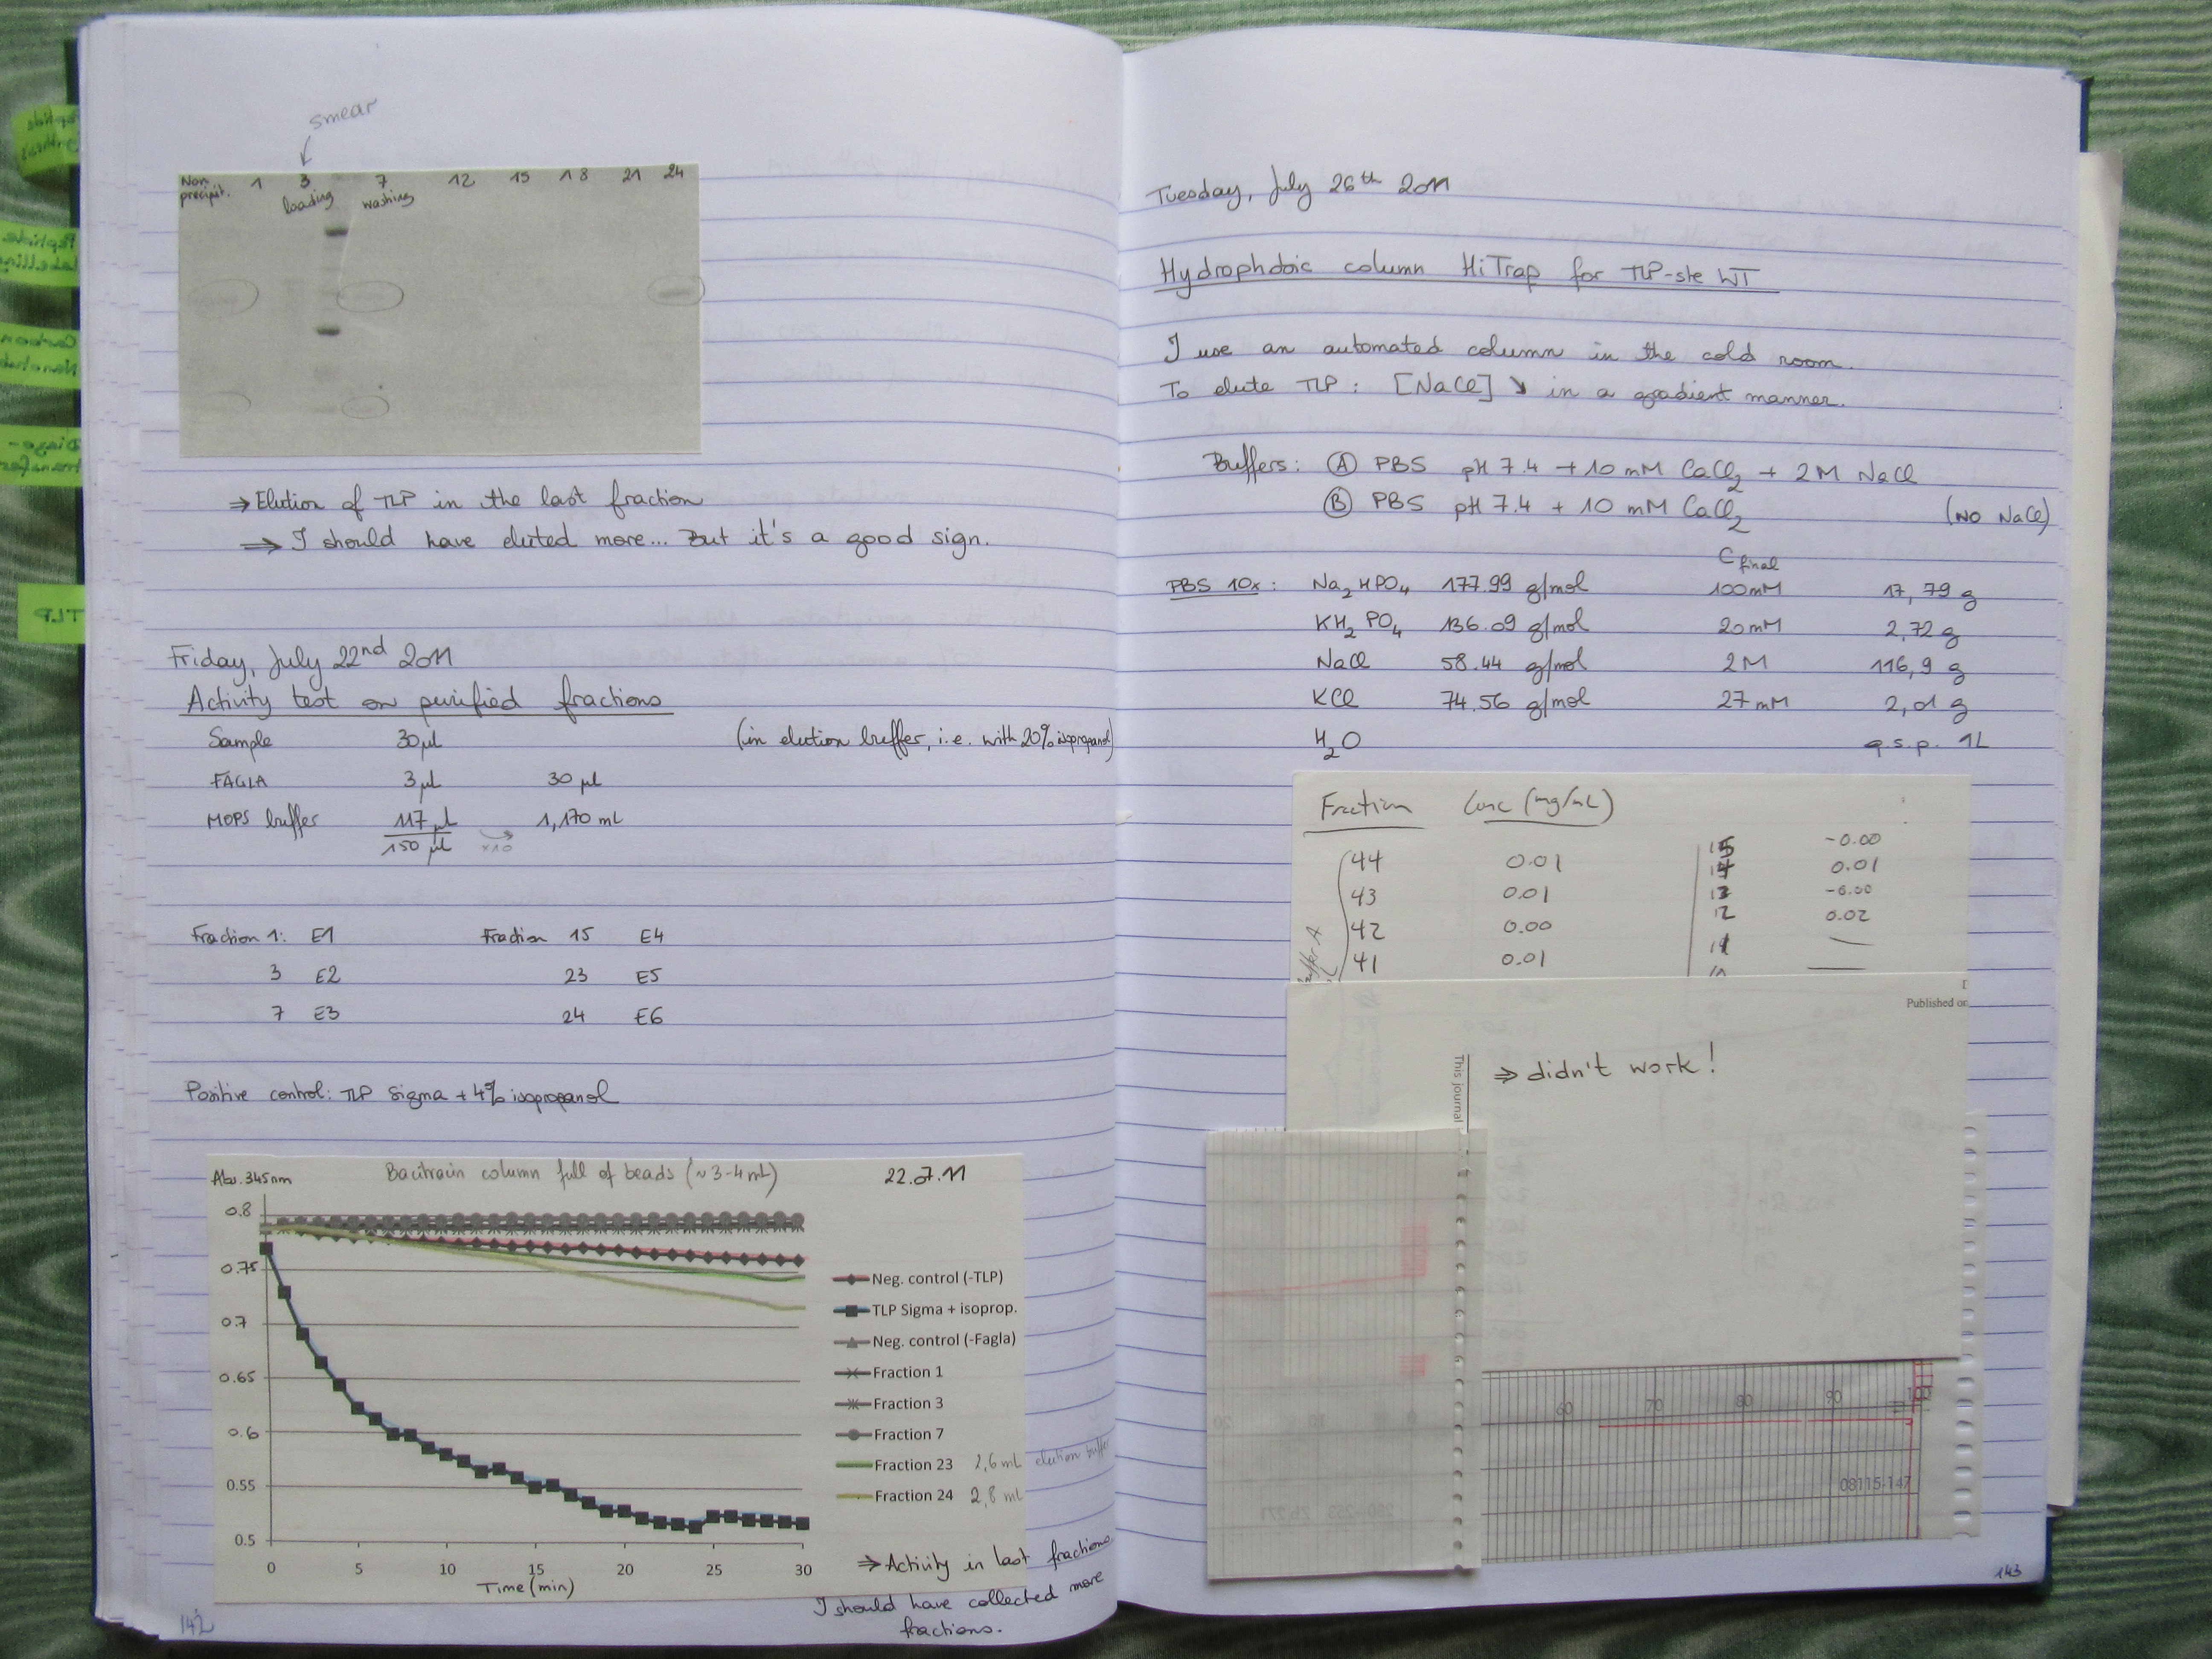 smear
Non precipit. 1 3 7 12 15 18 21 24
loading washing
⇒ Elution of TLP in the last fraction
⇒ I should have eluted more... But it's a good sign.
Friday, July 22nd 2011
Activity test on purified fractions
Sample 30 µl (in elution buffer, i.e. with 20% isopropanol)
FAGLA 3 µl 30 µl
MOPS buffer 117 µl 1,170 mL
150 µl x10
Fraction 1: E1 Fraction 15 E4
3 E2 23 E5
7 E3 24 E6
Positive control: TLP Sigma + 4% isopropanol
Abs. 345nm Bacitracin column full of beads (~3-4 mL) 22.07.11
0.8
0.75
0.7
0.65
0.6
0.55
0.5
0 5 10 15 20 25 30
Time (min)
Neg. control (-TLP)
TLP Sigma + isoprop.
Neg. control (-Fagla)
Fraction 1
Fraction 3
Fraction 7
Fraction 23 2,6 mL elution buffer
Fraction 24 2,8 mL
⇒ Activity in last fractions
I should have collected more
fractions.
142
TLP
Tuesday, July 26th 2011
Hydrophobic column HiTrap for TLP-ste WT
I use an automated column in the cold room.
To elute TLP: [NaCl] ↘ in a gradient manner.
Buffers: Ⓐ PBS pH 7.4 + 10 mM CaCl2 + 2M NaCl
Ⓑ PBS pH 7.4 + 10 mM CaCl2 (NO NaCl)
C final
PBS 10x: Na2HPO4 177.99 g/mol 100mM 17,79 g
KH2PO4 136.09 g/mol 20mM 2,72 g
NaCl 58.44 g/mol 2M 116,9 g
KCl 74.56 g/mol 27mM 2,01 g
H2O q.s.p. 1L
Fraction Conc (mg/mL)
15 -0.00
44 0.01 14 0.01
43 0.01 13 -0.00
42 0.00 12 0.02
41 0.01 11
Buffer A
Published on
This journal
⇒ didn't work!
60 70 80 90 100
08115-147
143